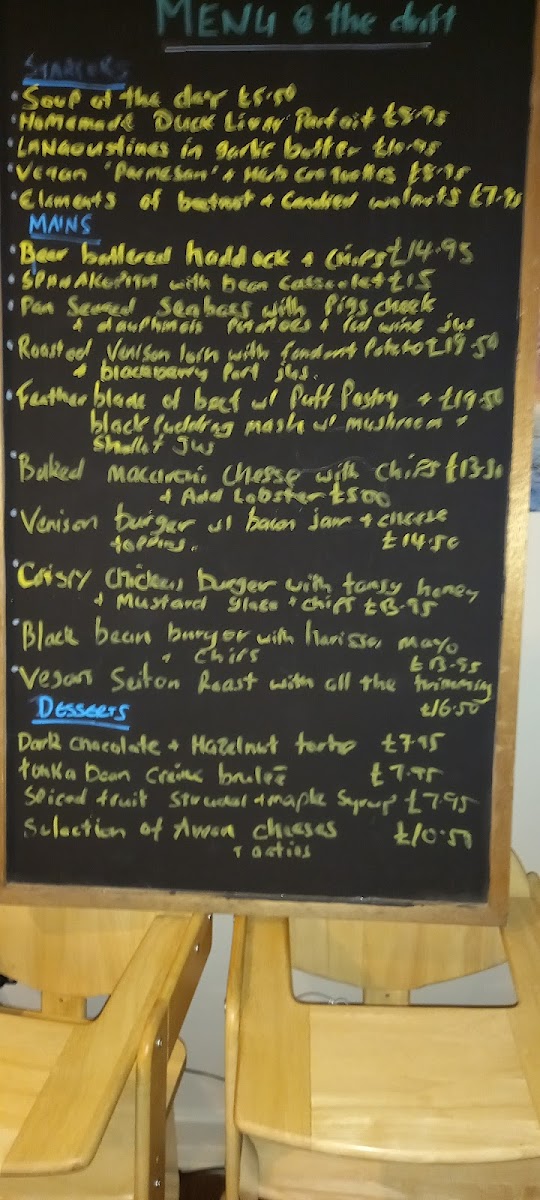 MENU @ the drift
STARTERS
• Soup of the day £5.50
• Homemade Duck Liver Parfait £8.95
• Langoustines in garlic butter £10.95
• Vegan 'Parmesan' + Herb Croquettes £8.95
• Elements of beetroot + Candied walnuts £7.95
MAINS
• Beer battered haddock + chips £14.95
• Spanakopita with bean cassoulet £15
• Pan Seared Seabass with Pigs cheek
+ dauphinois potatoes + red wine jus
• Roasted Venison loin with fondant Potato £19.50
+ blackberry Port jus.
• Feather blade of beef w/ Puff Pastry + £19.50
black pudding mash w/ mushroom +
Shallot Jus
• Baked macaroni cheese with chips £13.50
+ Add Lobster £5.00
• Venison burger w/ bacon jam + cheese
£14.50
• Crispy Chicken burger with tangy honey
+ Mustard glaze + chips £13.95
• Black bean burger with harissa mayo
+ chips £13.95
• Vegan Seiton Roast with all the trimmings
£16.50
DESSERTS
Dark chocolate + Hazelnut torte £7.95
tonka bean creme brulee £7.95
Spiced fruit strudel + maple syrup £7.95
Selection of Arran cheeses £10.50
+ oaties